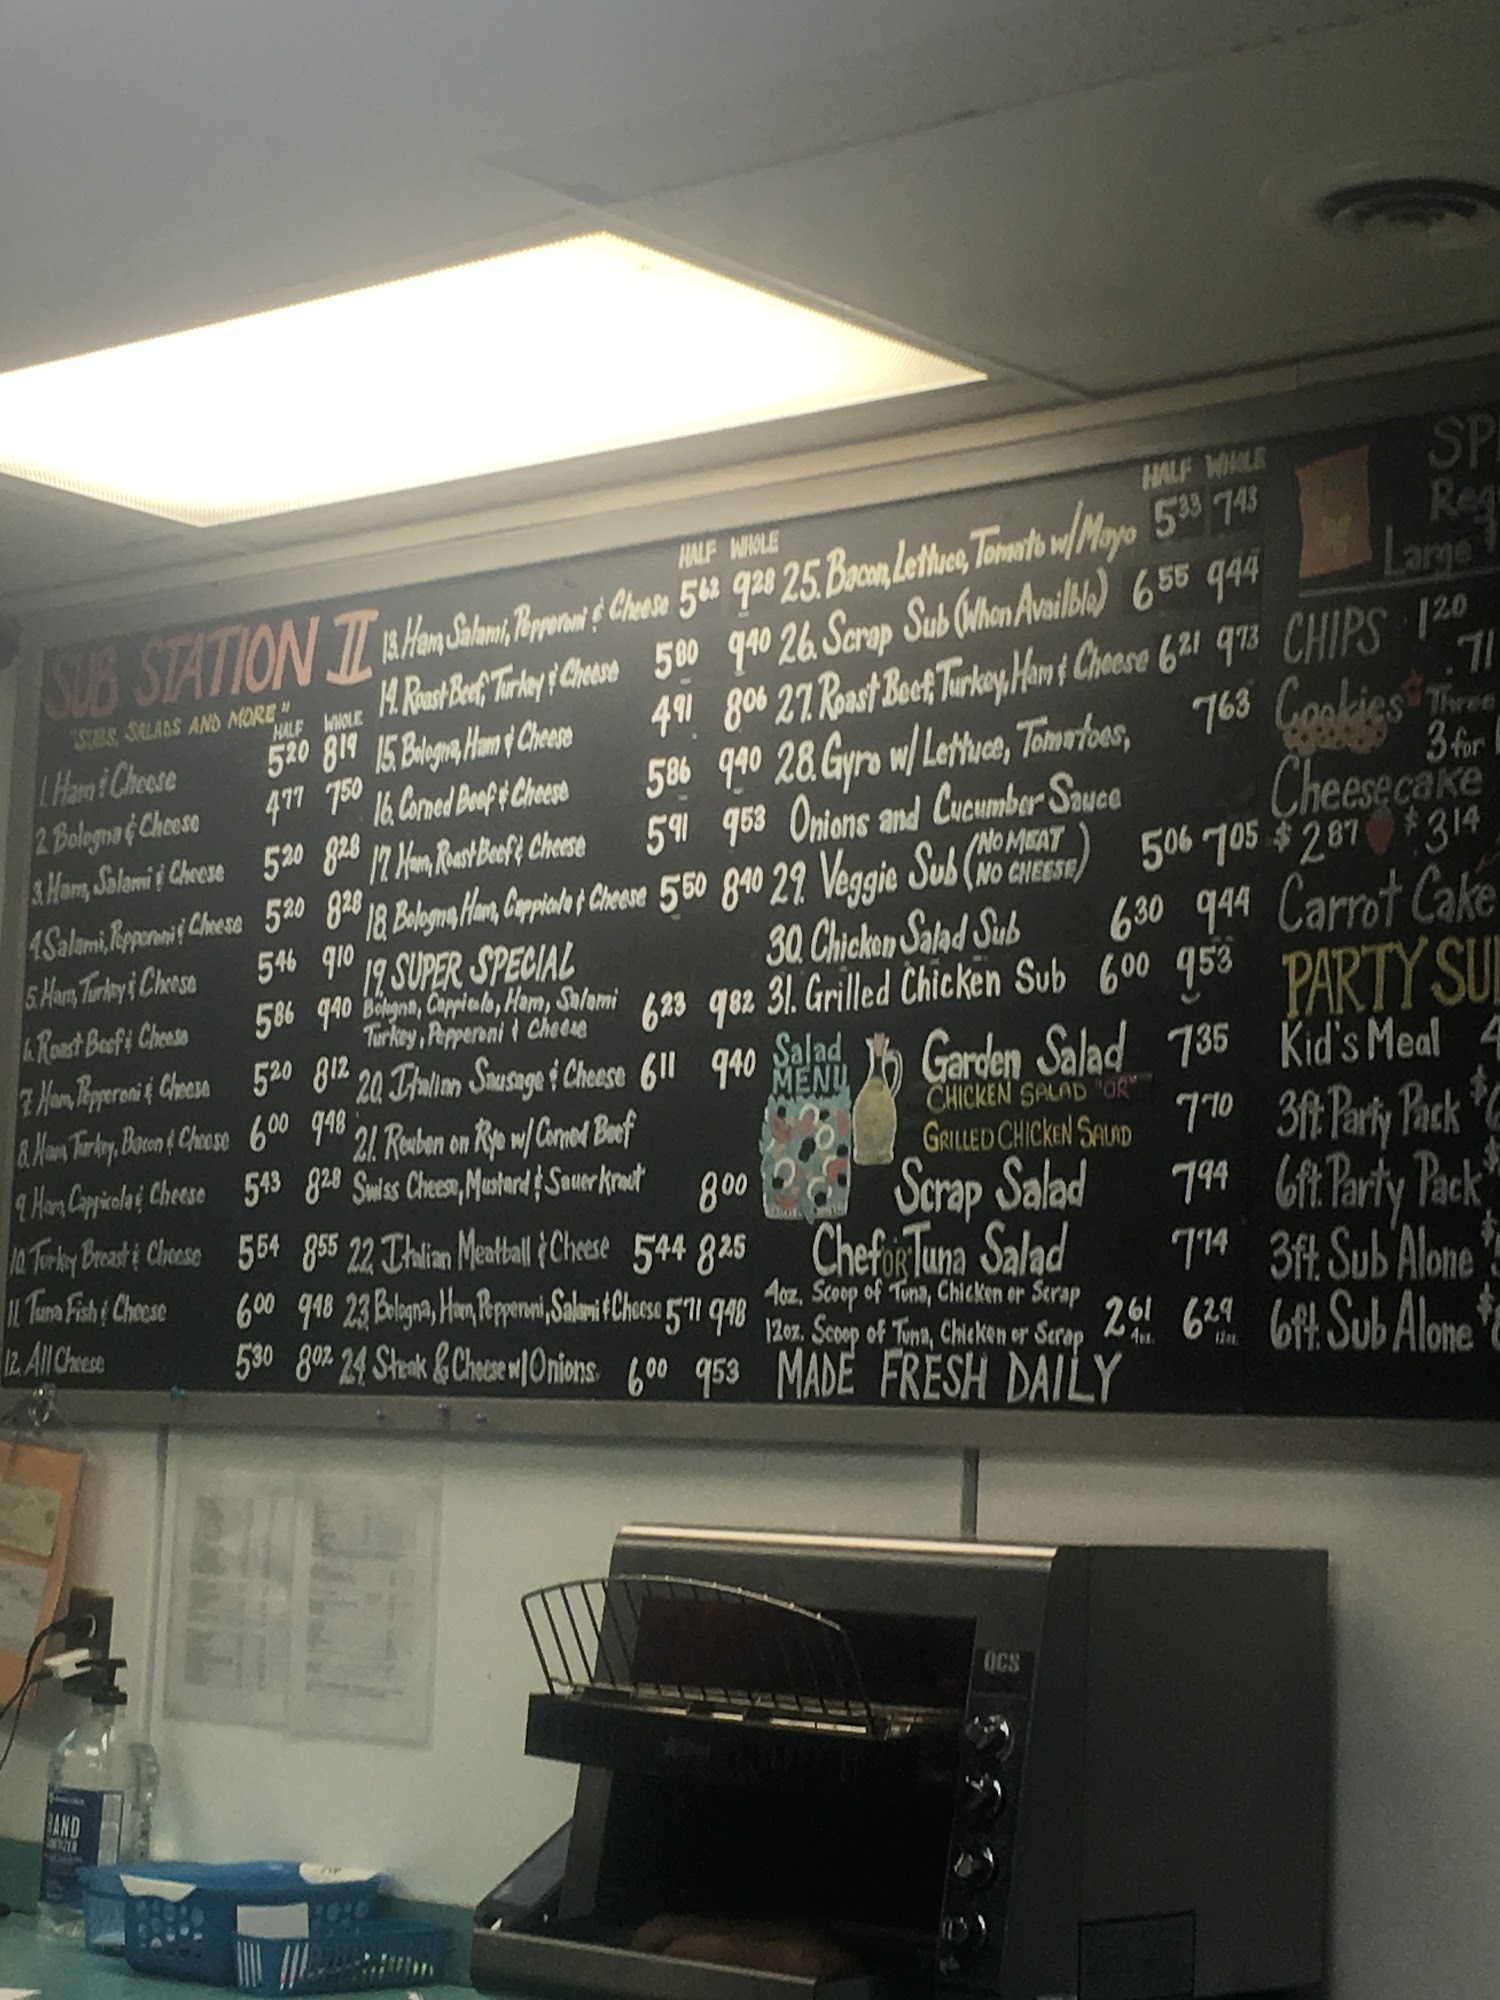 SUB STATION II
"SUBS, SALADS AND MORE"
HALF WHOLE
1. Ham & Cheese 5.20 8.19
2. Bologna & Cheese 4.77 7.50
3. Ham, Salami & Cheese 5.20 8.28
4. Salami, Pepperoni & Cheese 5.20 8.28
5. Ham, Turkey & Cheese 5.46 9.10
6. Roast Beef & Cheese 5.86 9.40
7. Ham, Pepperoni & Cheese 5.20 8.12
8. Ham, Turkey, Bacon & Cheese 6.00 9.48
9. Ham, Cappicola & Cheese 5.43 8.28
10. Turkey Breast & Cheese 5.54 8.55
11. Tuna Fish & Cheese 6.00 9.48
12. All Cheese 5.30 8.02
HALF WHOLE
13. Ham, Salami, Pepperoni & Cheese 5.62 9.28
14. Roast Beef, Turkey & Cheese 5.80 9.40
15. Bologna, Ham & Cheese 4.91 8.06
16. Corned Beef & Cheese 5.86 9.40
17. Ham, Roast Beef & Cheese 5.91 9.53
18. Bologna, Ham, Cappicola & Cheese 5.50 8.40
19. SUPER SPECIAL
Bologna, Cappicola, Ham, Salami
Turkey, Pepperoni & Cheese 6.23 9.82
20. Italian Sausage & Cheese 6.11 9.40
21. Reuben on Rye w/ Corned Beef
Swiss Cheese, Mustard & Sauerkraut 8.00
22. Italian Meatball & Cheese 5.44 8.25
23. Bologna, Ham, Pepperoni, Salami & Cheese 5.71 9.48
24. Steak & Cheese w/ Onions 6.00 9.53
HALF WHOLE
25. Bacon, Lettuce, Tomato w/ Mayo 5.33 7.43
26. Scrap Sub (When Availble) 6.55 9.44
27. Roast Beef, Turkey, Ham & Cheese 6.21 9.73
28. Gyro w/ Lettuce, Tomatoes, 7.63
Onions and Cucumber Sauce
29. Veggie Sub (NO MEAT NO CHEESE) 5.06 7.05
30. Chicken Salad Sub 6.30 9.44
31. Grilled Chicken Sub 6.00 9.53
Salad
MENU
Garden Salad 7.35
CHICKEN SALAD "OR" 7.70
GRILLED CHICKEN SALAD
Scrap Salad 7.94
Chef OR Tuna Salad 7.74
4oz. Scoop of Tuna, Chicken or Scrap
12oz. Scoop of Tuna, Chicken or Scrap 2.61 4oz. 6.29 12oz.
MADE FRESH DAILY
Large
CHIPS 1.20
.71
Cookies Three
3 for
Cheesecake
$2.87 $3.14
Carrot Cake
PARTY
Kid's Meal
3ft. Party Pack $
6ft. Party Pack $
3ft. Sub Alone $
6ft. Sub Alone $
QCS